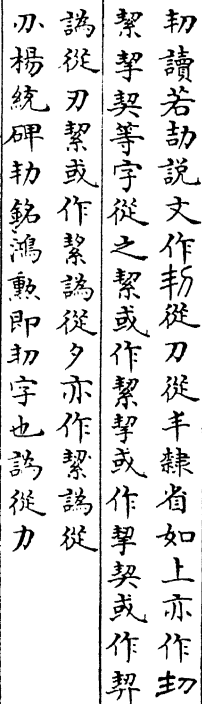 㓞讀若劼說文作㓞從刀從丯隸省如上亦作㓞
絜挈契等字從之絜或作絜挈或作挈契或作契
譌從刃絜或作絜譌從夕亦作絜譌從
刅楊統碑㓞銘鴻勲即㓞字也譌從力